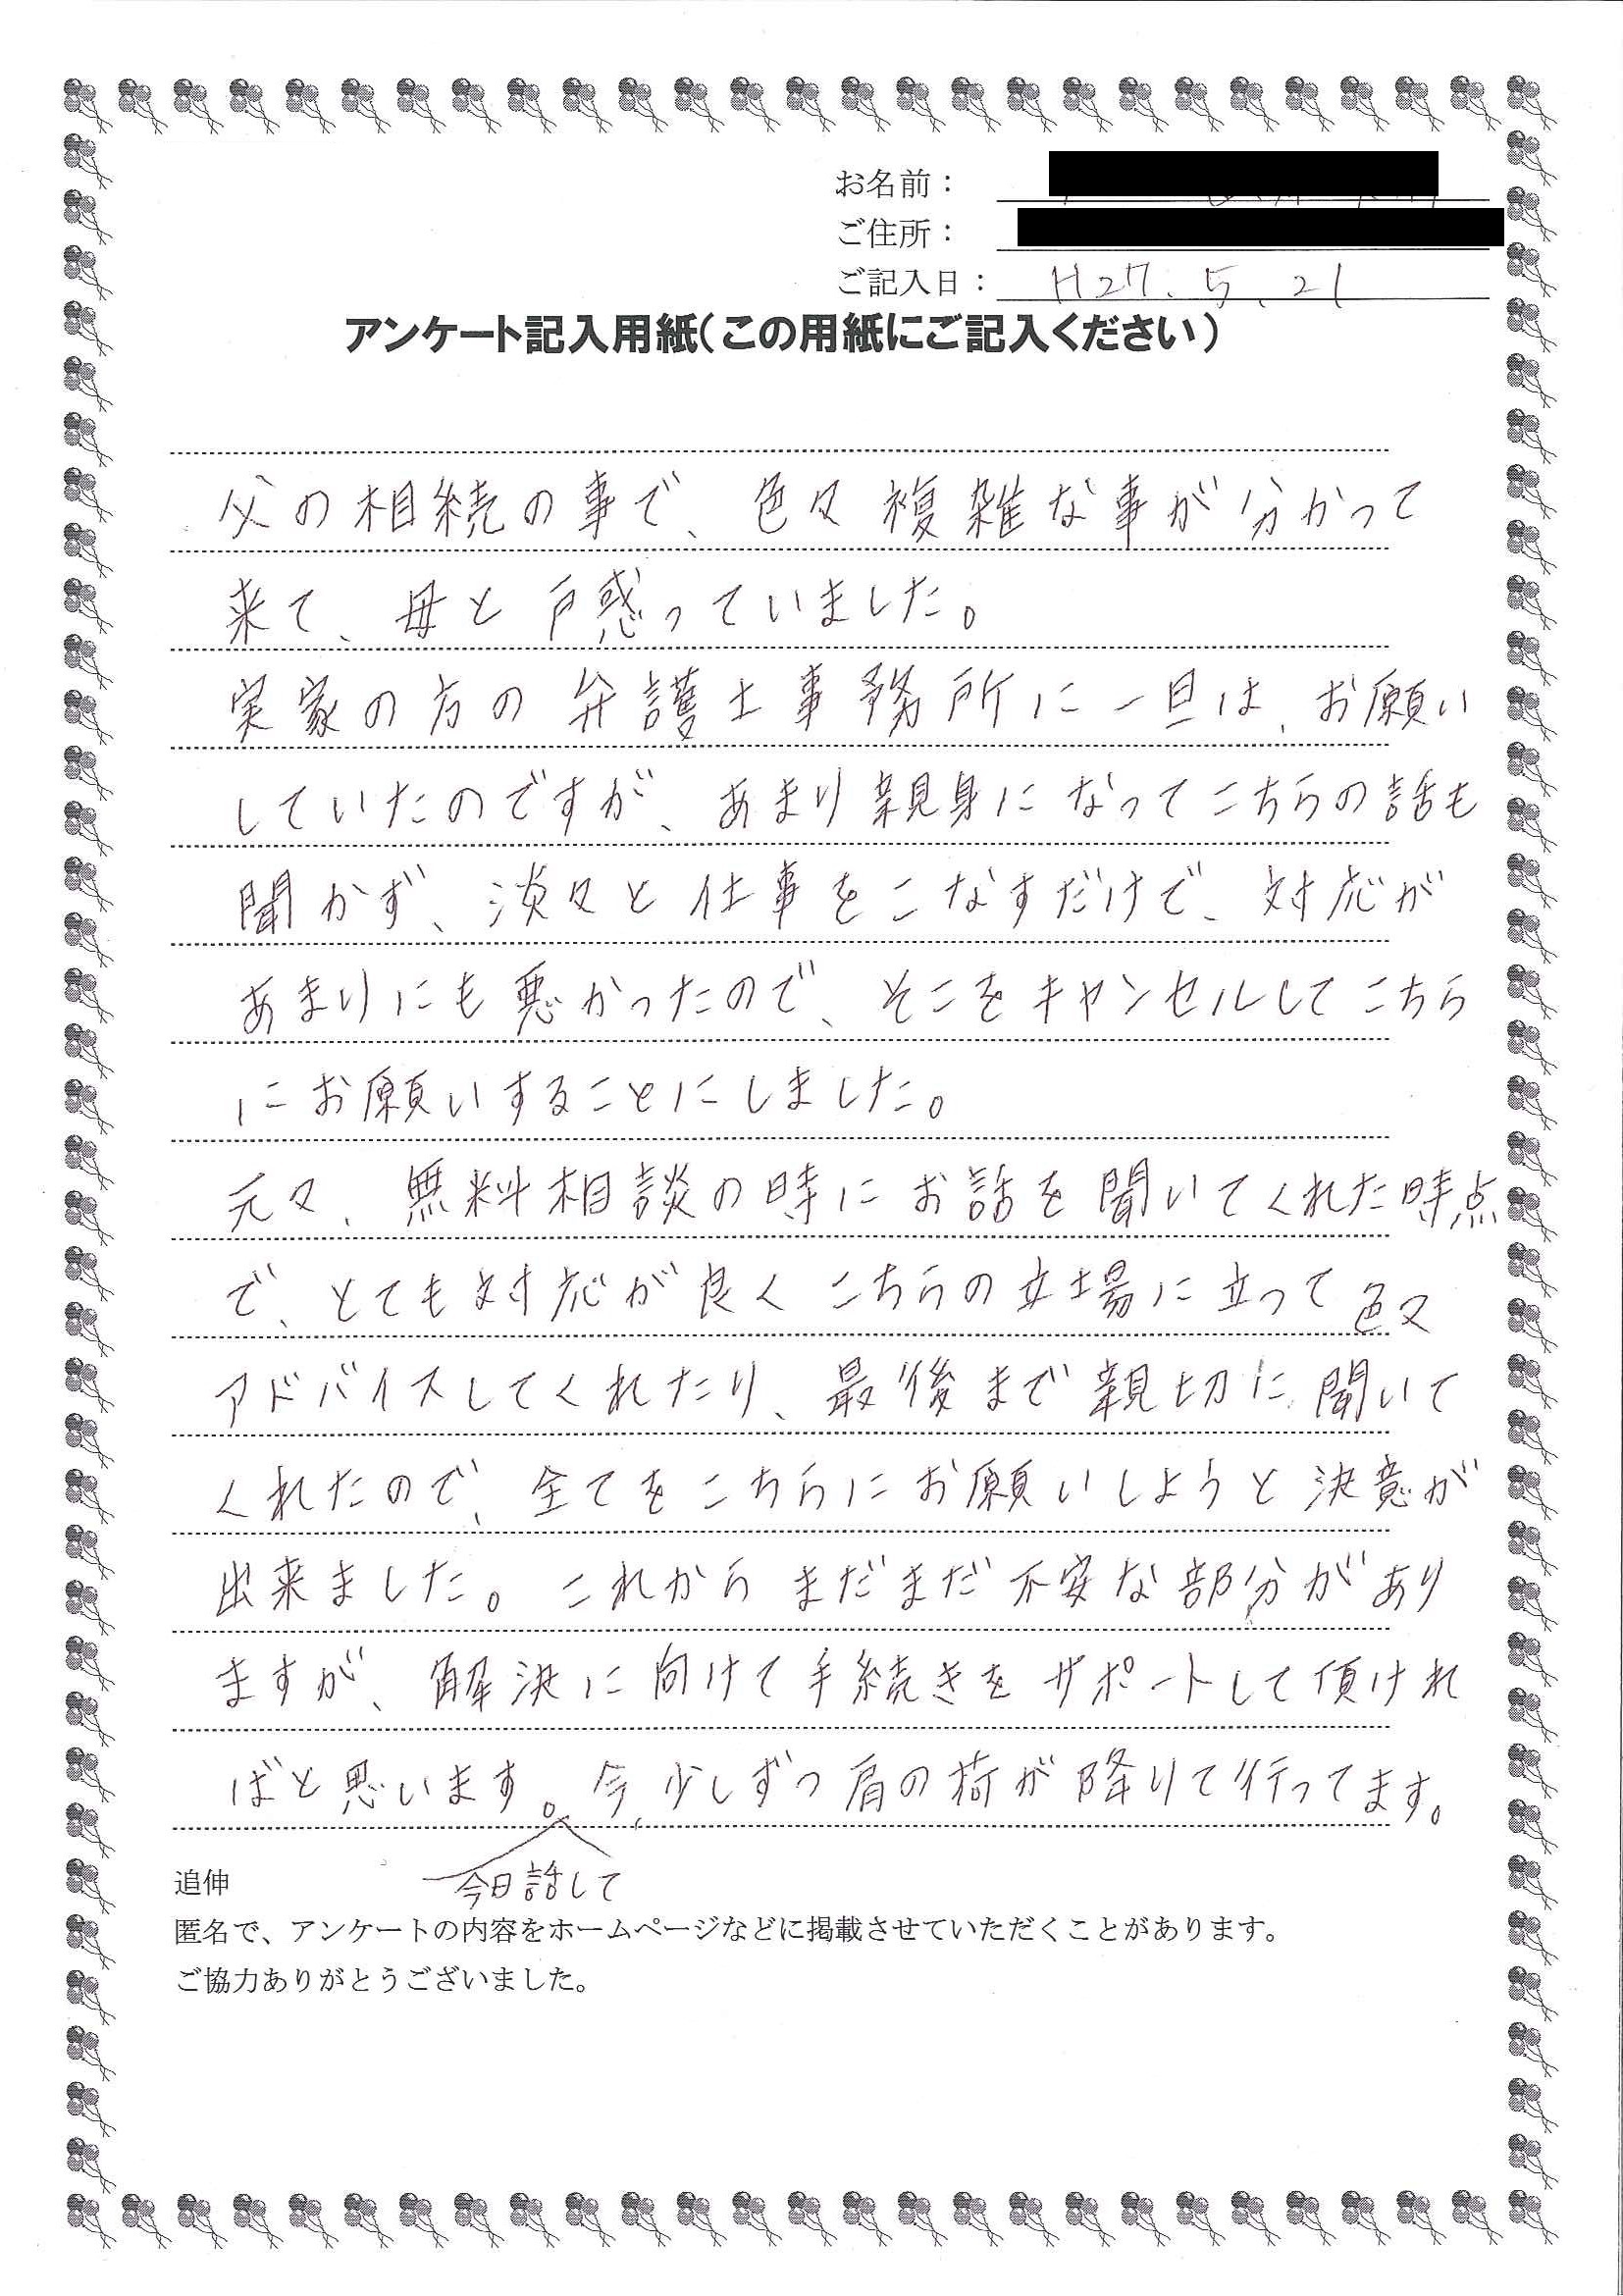 お名前：
ご住所：
ご記入日： H27.5.21
アンケート記入用紙（この用紙にご記入ください）
父の相続の事で、色々複雑な事が分かって
来て、母と戸惑っていました。
実家の方の弁護士事務所に一旦は、お願い
していたのですが、あまり親身になってこちらの話も
聞かず、淡々と仕事をこなすだけで、対応が
あまりにも悪かったので、そこをキャンセルしてこちら
にお願いすることにしました。
元々、無料相談の時にお話を聞いてくれた時点
で、とても対応が良くこちらの立場に立って色々
アドバイスしてくれたり、最後まで親切に聞いて
くれたので、全てをこちらにお願いしようと決意が
出来ました。これからまだまだ不安な部分があり
ますが、解決に向けて手続きをサポートして頂けれ
ばと思います。今、少しずつ肩の荷が降りて行ってます。
今日話して
追伸
匿名で、アンケートの内容をホームページなどに掲載させていただくことがあります。
ご協力ありがとうございました。